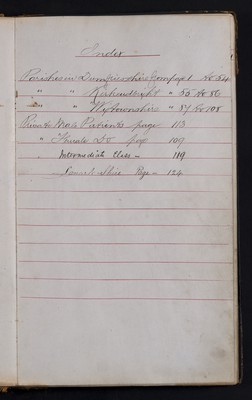 Index
Parishes in Dumfriesshire from page 1 to 54
" " Kirkcudbright " 55 to 86
" " Wigtownshire " 87 to 108
Private Male Patients page 113
" Female Do page 109
Intermediate Class - 119
Page - 124